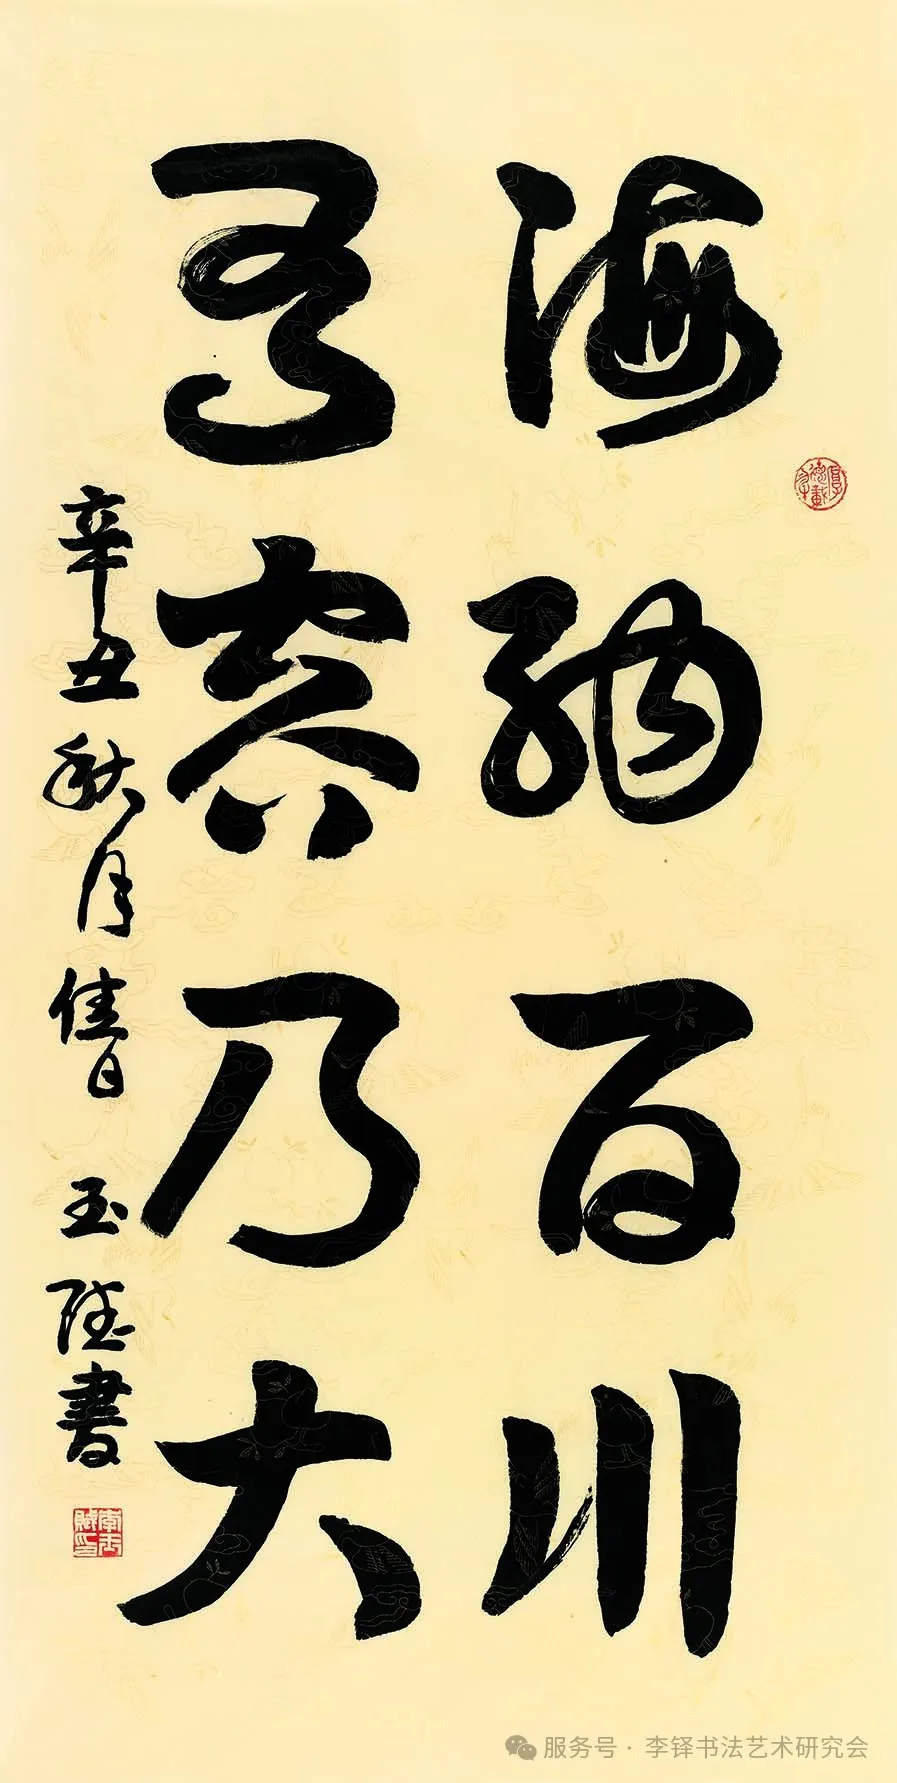 海納百川
有容乃大
辛丑秋月佳日 玉書
服务号 · 李铎书法艺术研究会